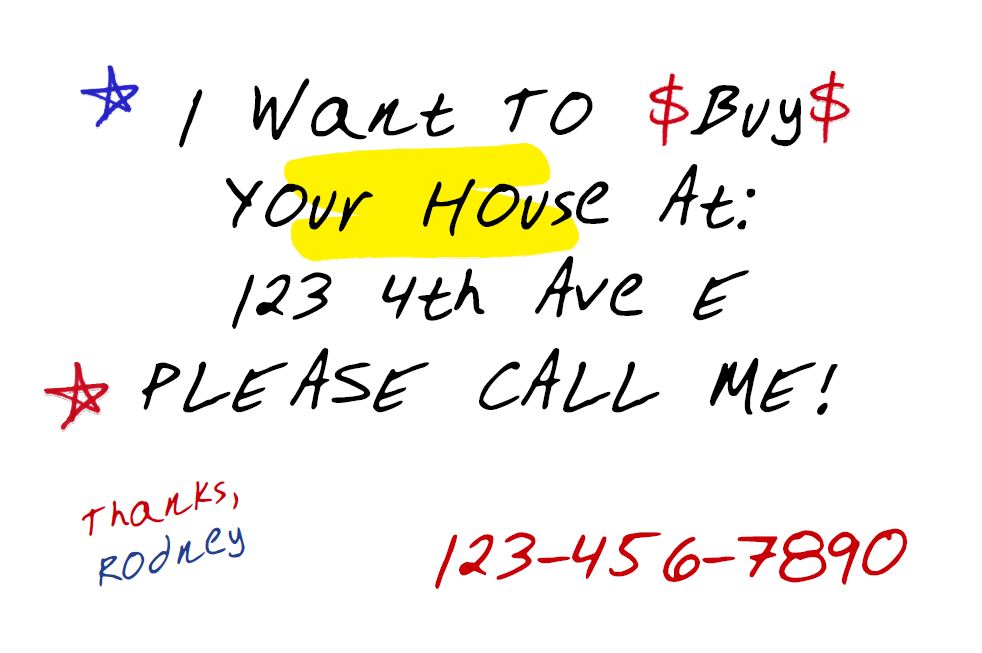 I Want To $Buy$
Your House At:
123 4th Ave E
PLEASE CALL ME!
Thanks,
Rodney
123-456-7890